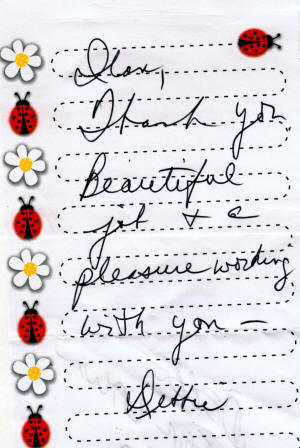 Thank you
Beautiful
job + a
pleasure working
with you —